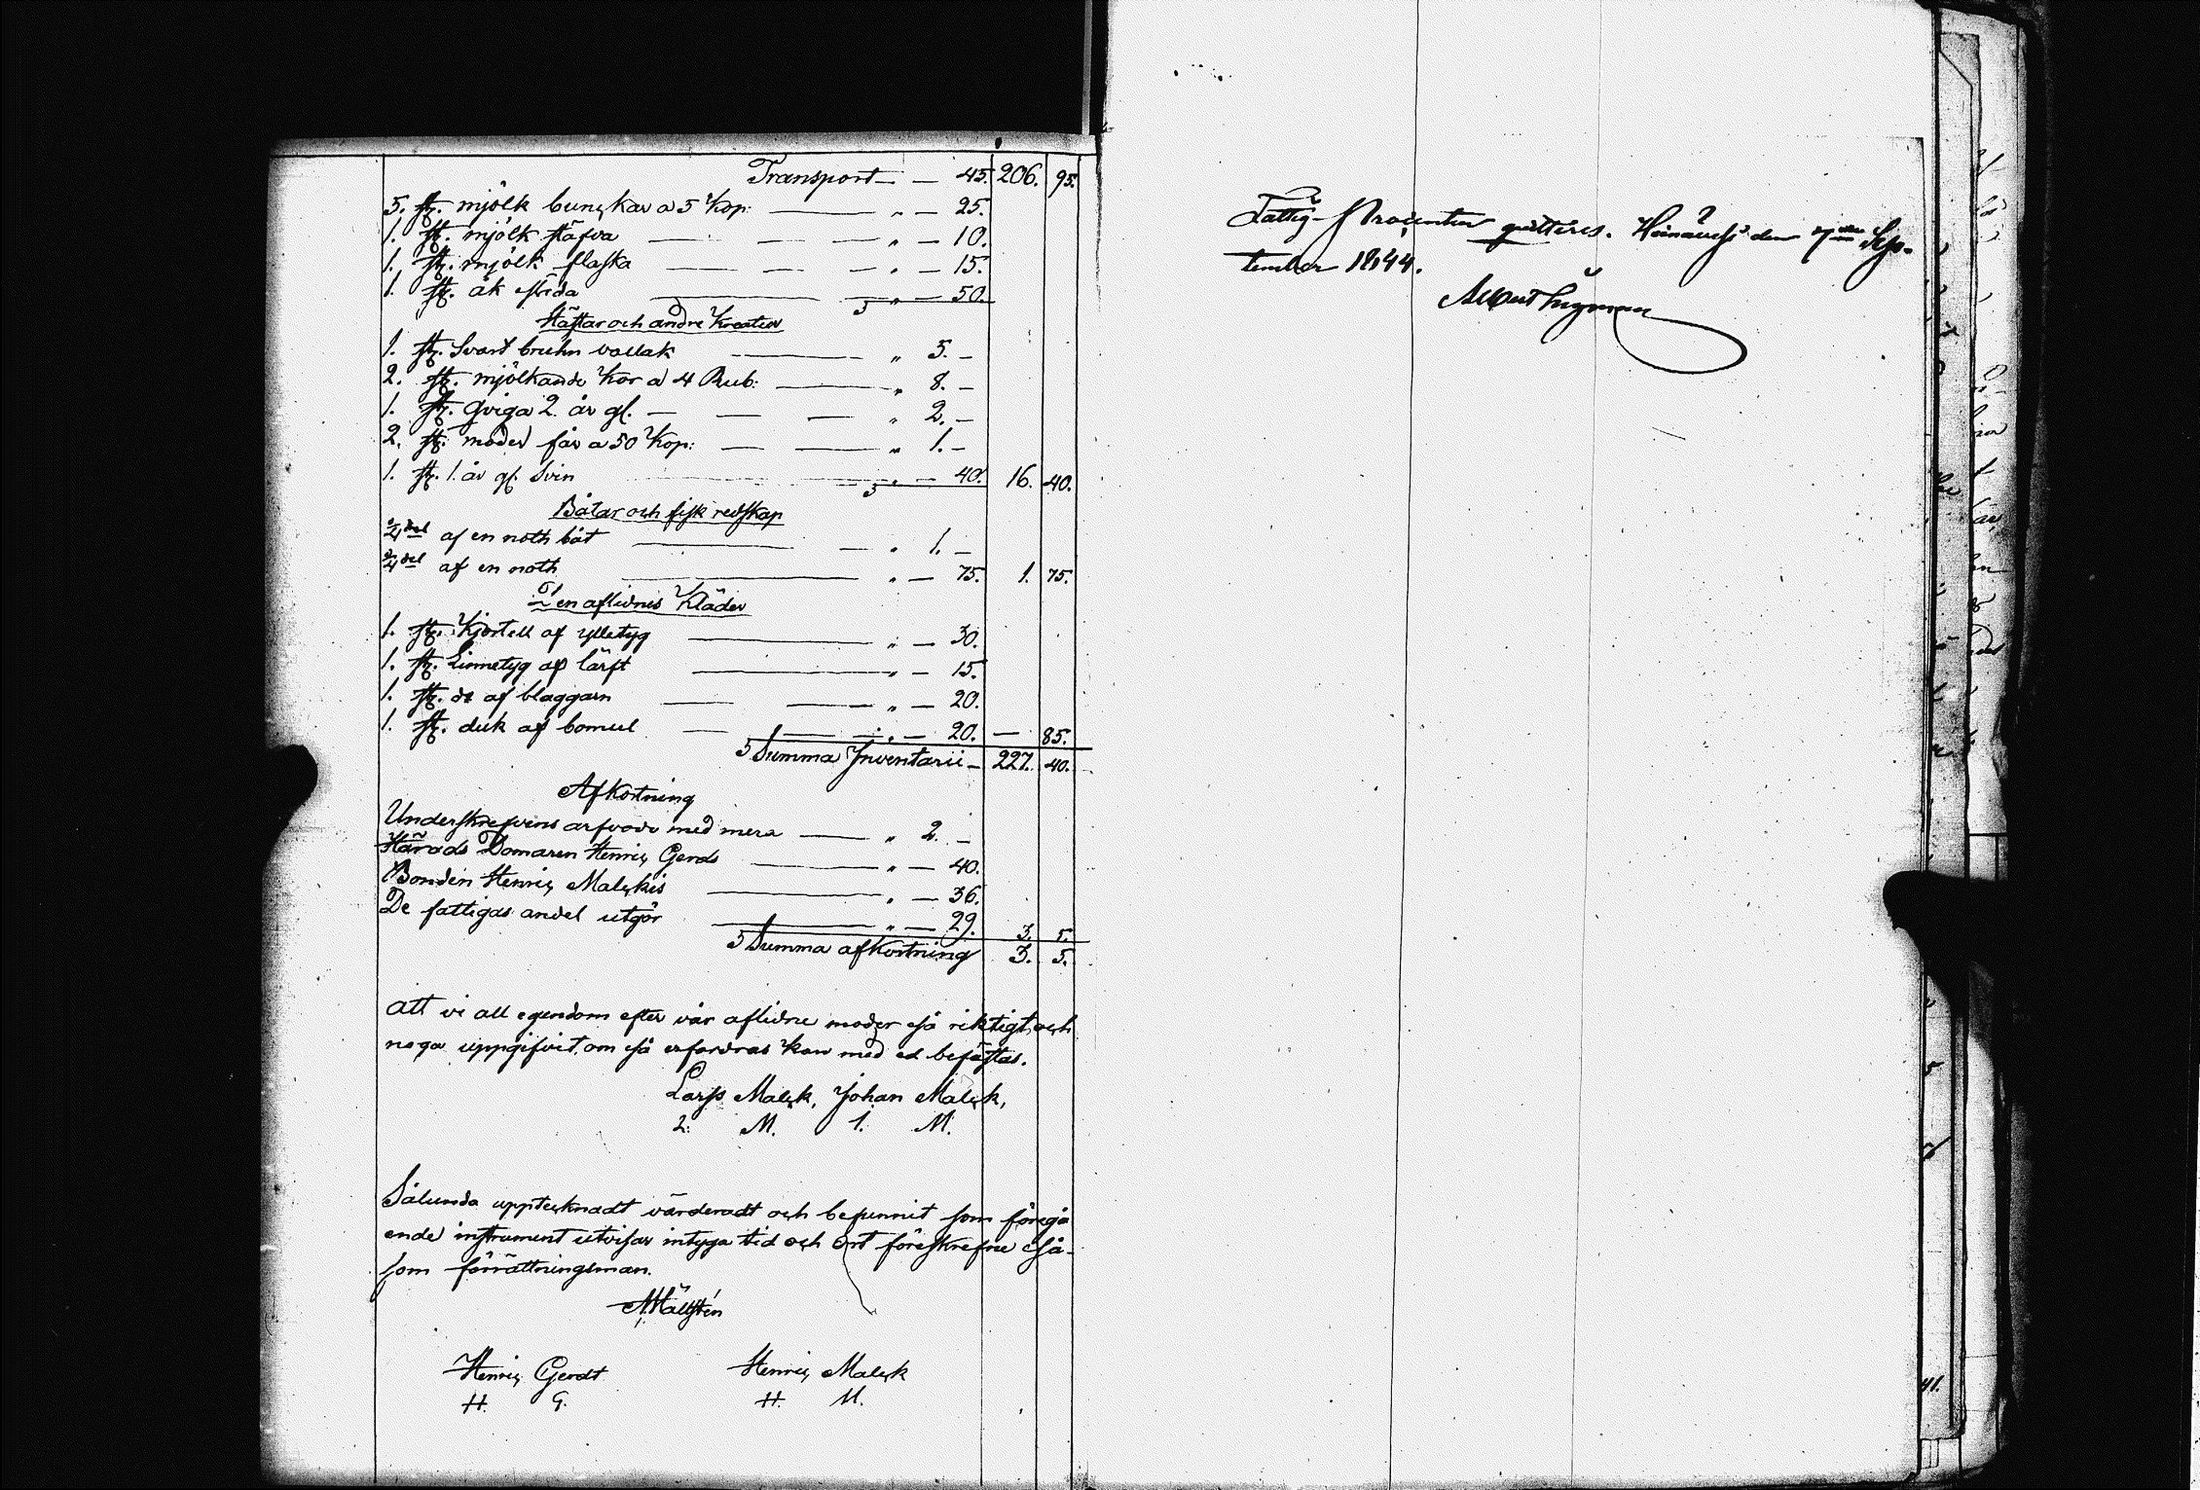 Transport — — 45. 206. 95.
5. st. mjölk bunckar a 5 Kop: — " — 25.
1. st. mjölk stäfva — — — " — 10.
1. st. mjölk flaska — — — " — 15.
1. st. åk släda — — " — 50.
Hästar och andre Kreatur
1. st. Svart bruhn vallak — " 5. —
2. st. mjölkande Kor a 4 Rub: — " 8. —
1. st. qviga 2. år gl. — — — " 2. —
2. st. moder får a 50 Kop: — — " 1. —
1. st. 1. år gl. Svin — " — 40. 16. 40.
Båtar och fisk redskap
2/4 del af en noth båt — — " 1. —
2/4 del af en noth — " — 75. 1. 75.
Den aflidnes Kläder
1. st. Kjortell af ylletyg — " — 30.
1. st. Linnetyg af lärft — " — 15.
1. st. do af blaggarn — — " — 20.
1. st. duk af bomul — — " — 20. — 85.
Summa Inventarii — 227. 40.
Afkortning
Underskrefvens arfvode med mera — " 2. —
Härads Domaren Henric Gerds — " — 40.
Bonden Henric Malckis — " — 36.
De fattigas andel utgör — " — 29. 3. 5.
Summa afkortning 3. 5.
Att vi all egendom efter vår aflidne moder så riktigt och
noga uppgifvit, om så erfordras kan med ed befästas.
Larss Malck, Johan Malck,
L. M. I. M.
Sålunda upptecknadt värderadt och befunnit som föregå
ende instrument utvisar intyga tid och ort föreskrefne så-
som förrättningsman.
Hällstén
Henric Gerdt Henric Malck
H. G. H. M.
Fattig-Procenten quitteras. den 7de Sep-
tember 1844.
Ingman
41.